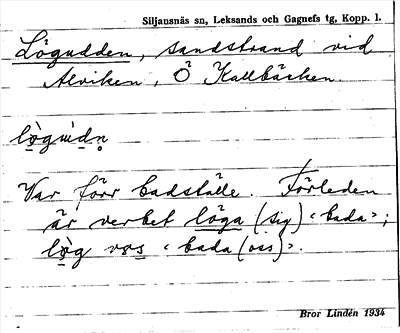 Siljansnäs sn, Leksands och Gagnefs tg, Kopp. l.
Lögudden, sandstrand vid
Alviken, Ö Kallbäcken.
lò̤gùdn̥
Var förr badställe. Förleden
är verbet löga (sig) ‹bada›;
lò̤g vɷs ‹bada (oss)›.
Bror Lindén 1934